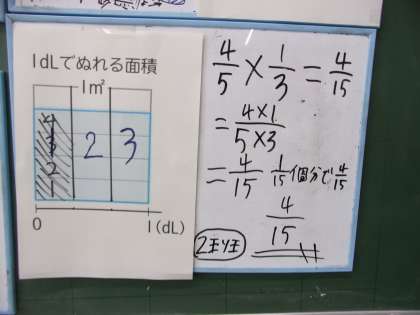 1dLでぬれる面積
1m²
4
3
2
1
2
3
0 1(dL)
4/5 × 1/3 = 4/15
= 4×1/5×3
= 4/15 1/15個分で4/15
4/15